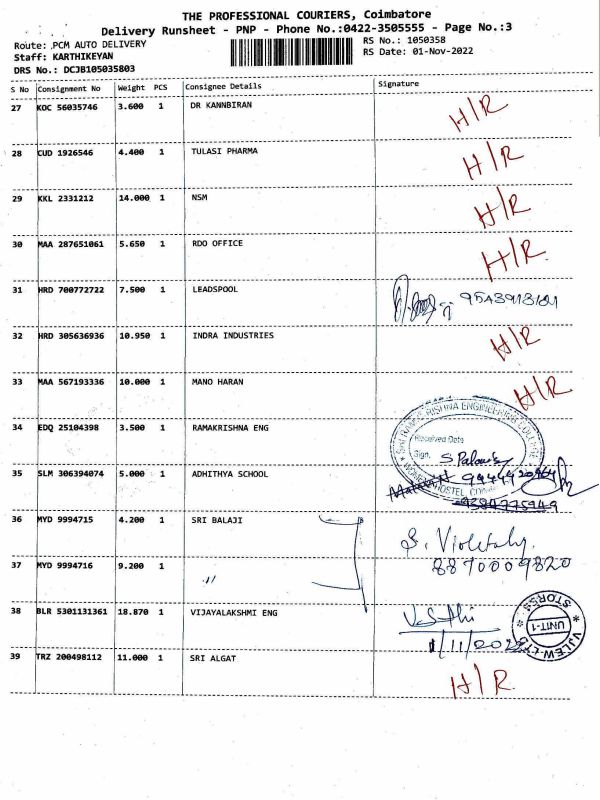 THE PROFESSIONAL COURIERS, Coimbatore
Delivery Runsheet - PNP - Phone No.:0422-3505555 - Page No.:3
Route: PCM AUTO DELIVERY
RS No.: 1050358
Staff: KARTHIKEYAN
RS Date: 01-Nov-2022
DRS No.: DCJB105035803
S No Consignment No Weight PCS Consignee Details Signature
27 KOC 56035746 3.600 1 DR KANNBIRAN H/R
28 CUD 1926546 4.400 1 TULASI PHARMA H/R
29 KKL 2331212 14.000 1 NSM H/R
30 MAA 287651061 5.650 1 RDO OFFICE H/R
31 HRD 700772722 7.500 1 LEADSPOOL
32 HRD 305636936 10.950 1 INDRA INDUSTRIES H/R
33 MAA 567193336 10.000 1 MANO HARAN H/R
34 EDQ 25104398 3.500 1 RAMAKRISHNA ENG
Received Date
Sign.
35 SLM 306394074 5.000 1 ADHITHYA SCHOOL
36 MYD 9994715 4.200 1 SRI BALAJI
37 MYD 9994716 9.200 1 ,, 8870009820
38 BLR 5301131361 18.870 1 VIJAYALAKSHMI ENG
STORES
UNIT-1
1/11/2022
39 TRZ 200498112 11.000 1 SRI ALGAT H/R